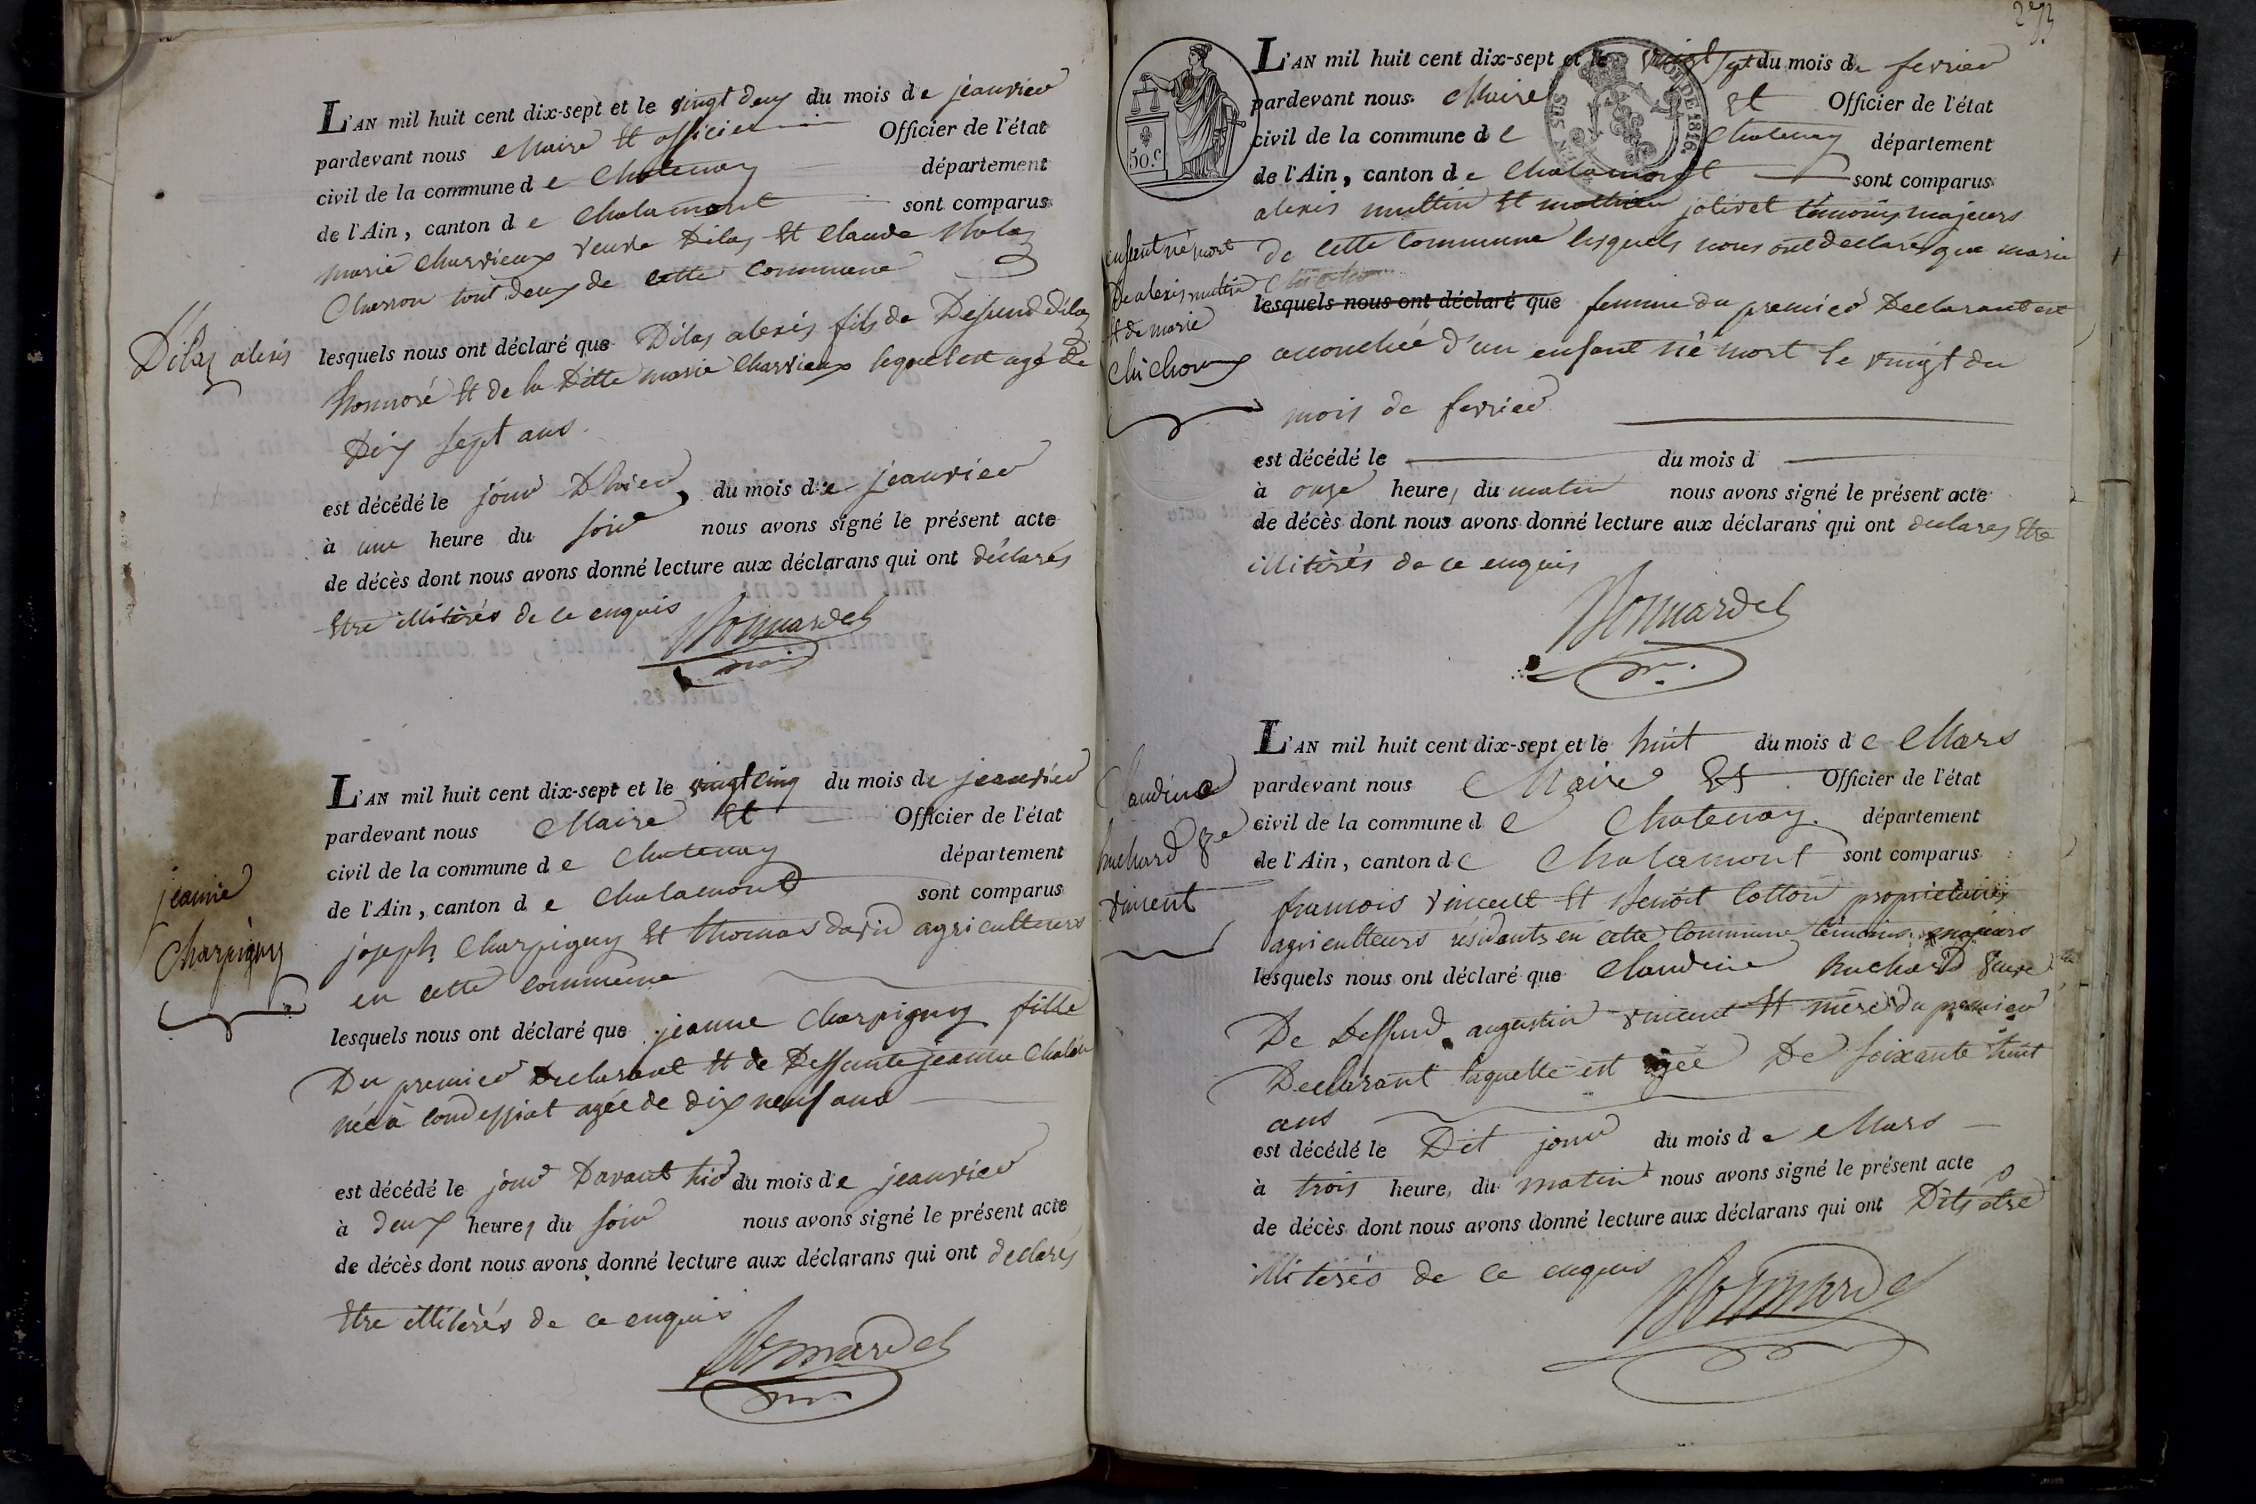 L'AN mil huit cent dix-sept et le vingt deux du mois de jeanvier
pardevant nous Maire et officier Officier de l'état
civil de la commune de Chatenay département
de l'Ain, canton de Chalamont sont comparus
marie Charvieux veuve Dilas et Claude
Charron tout deux de cette commune
Dilas alexis
lesquels nous ont déclaré que Dilas alexis fils de Defund Dilas
honnoré et de la Ditte marie Charvieux lequel est agé de
Dix sept ans
est décédé le jour D'hier du mois de jeanvier
à une heure du soir nous avons signé le présent acte
de décès dont nous avons donné lecture aux déclarans qui ont déclarés
Etre illitérés de ce enquis
Bonnardel
L'AN mil huit cent dix-sept et le vingt cinq du mois de jeanvier
pardevant nous Maire et Officier de l'état
civil de la commune de Chatenay département
de l'Ain, canton de Chalamont sont comparus
jeanne
Charpigny
joseph Charpigny et thomas david agriculteurs
en cette commune
lesquels nous ont déclaré que jeanne Charpigny fille
Du premier Declarant et de Deffunte jeanne
née à Condessiat agée de dix neuf ans
est décédé le jour Davant hier du mois de jeanvier
à deux heures du soir nous avons signé le présent acte
de décès dont nous avons donné lecture aux déclarans qui ont declarés
Etre illitérés de ce enquis
Bonnardel
L'AN mil huit cent dix-sept et le vingt sept du mois de fevrier
pardevant nous Maire et Officier de l'état
civil de la commune de Chatenay département
de l'Ain, canton de Chalamont sont comparus
50.c
alexis muttin et mathieu jolivet témoins majeurs
enfant né mort
De alexis muttin
et de marie
Chichoux
de cette Commune lesquels nous ont declarés que marie
lesquels nous ont déclaré que femme du premier Declarant est
accouchée d'un enfant né mort le vingt du
mois de fevrier
est décédé le du mois d
à onze heures du matin nous avons signé le présent acte
de décès dont nous avons donné lecture aux déclarans qui ont declares Etre
illitérés de ce enquis
Bonnardel
L'AN mil huit cent dix-sept et le huit du mois de Mars
pardevant nous Maire et Officier de l'état
civil de la commune de Chatenay département
de l'Ain, canton de Chalamont sont comparus
Claudine
buchard
vincent
francois vincent et Benoit Cotton proprietaires
agriculteurs résidants en cette Commune témoins majeurs
lesquels nous ont déclaré que Claudine Buchard veuve
De Deffund augustin vincent et mère du premier
Declarant laquelle est agée De soixante huit
ans
est décédé le Dit jour du mois de Mars
à trois heures du matin nous avons signé le présent acte
de décès dont nous avons donné lecture aux déclarans qui ont Dits etre
illitérés de ce enquis
Bonnardel